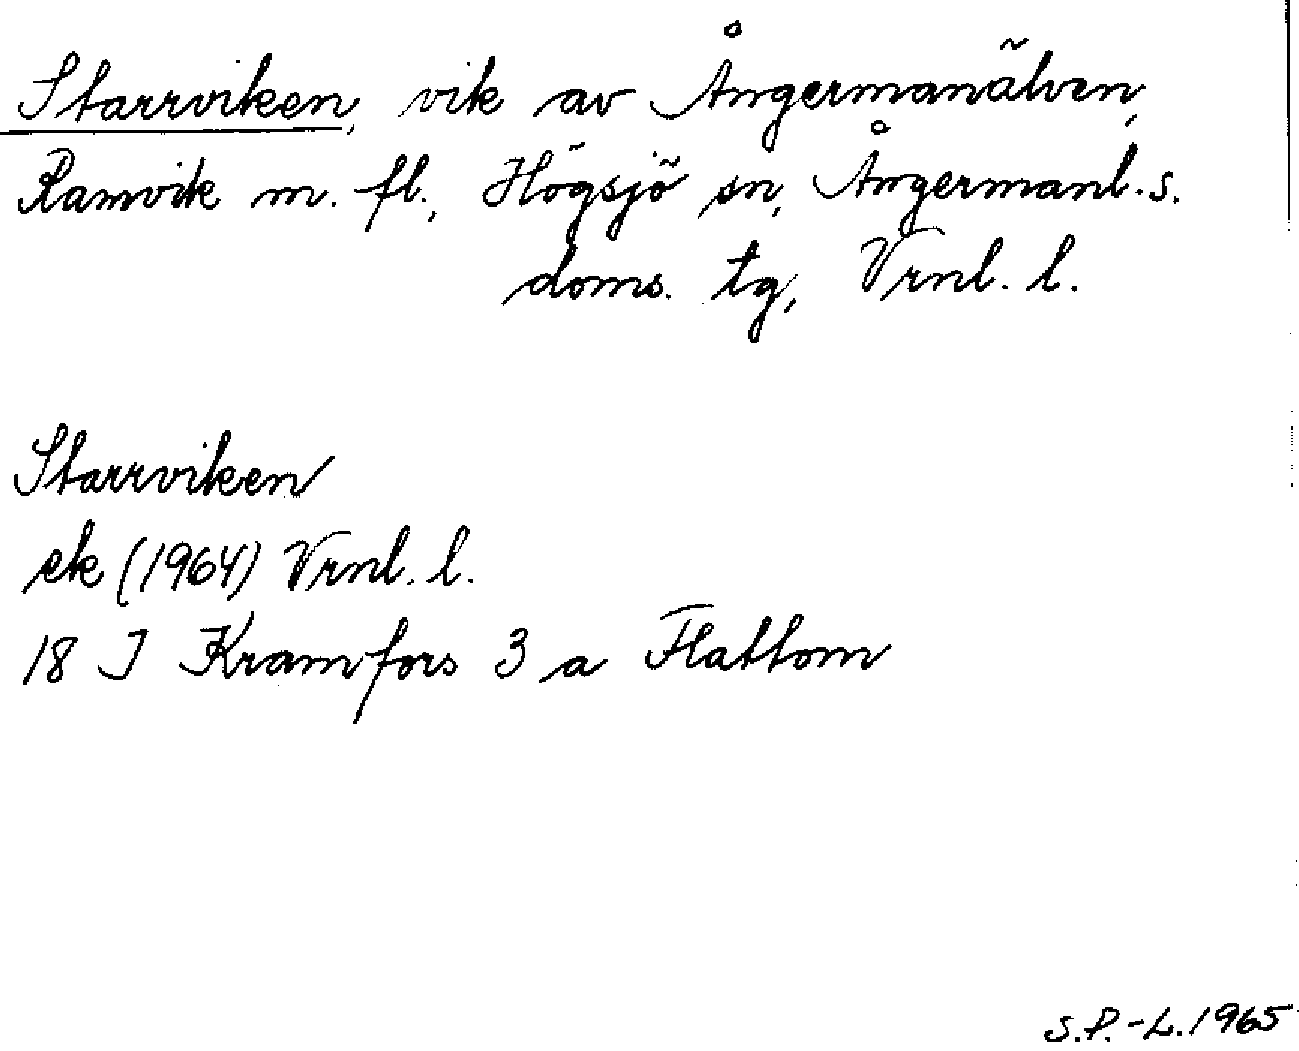 Starrviken, vik av Ångermanälven,
Ramvik m. fl., Högsjö sn, Ångermanl. s.
doms. tg, Vrnl. l.
Starrviken
ek (1964) Vrnl. l.
18 I Kramfors 3 a Flattom
S.P.-L. 1965